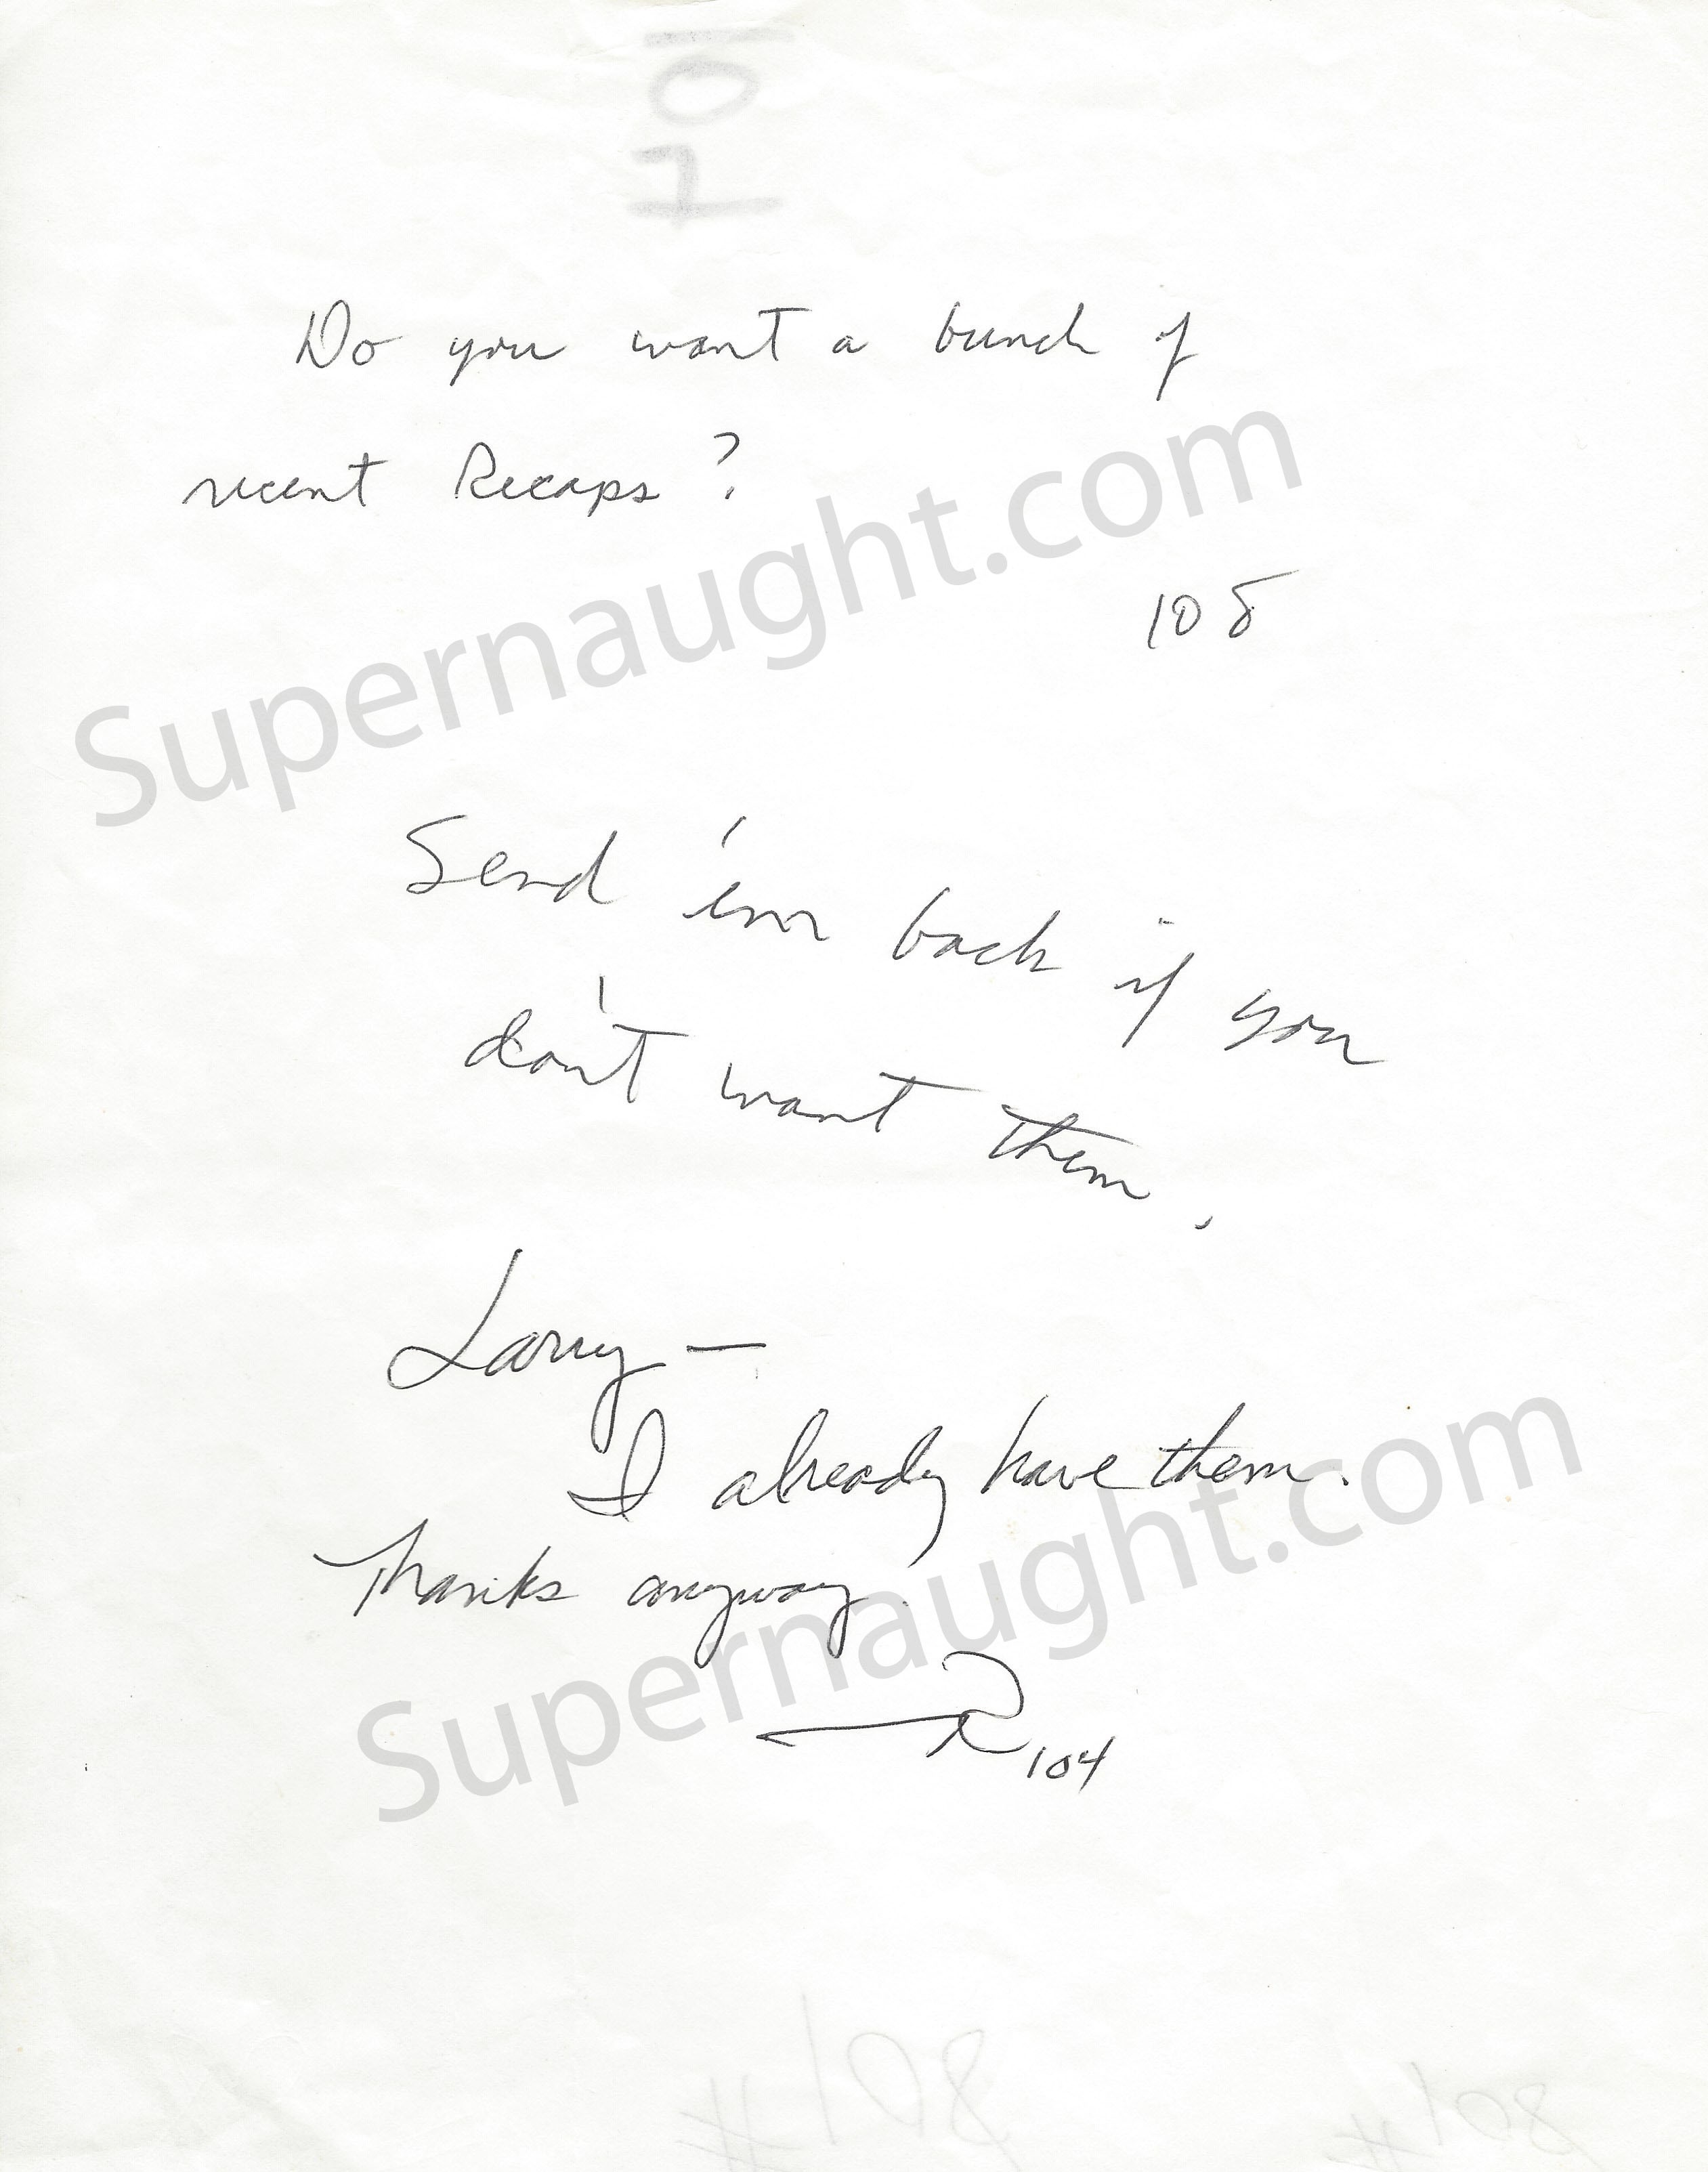 104
Do you want a bunch of
recent Recaps?
108
Supernaught.com
Send 'em back if you
don't want them.
Larry —
I already have them.
Thanks anyway.
— R 104
Supernaught.com
#108
#108